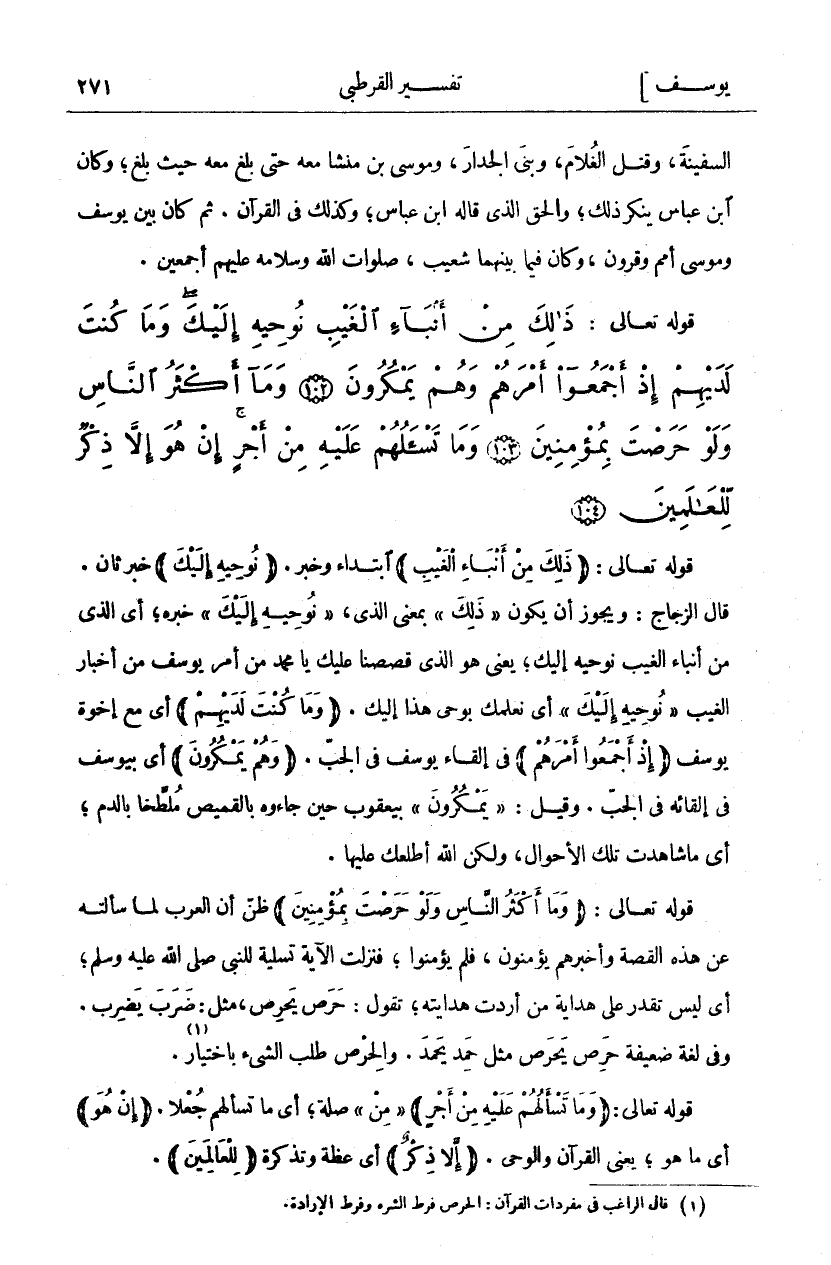 يوسف ] تفسير القرطبي ٢٧١
السفينة، وقتل الغُلامَ، وبنَى الجدارَ، وموسى بن منشا معه حتى بلغ معه حيث بلغ؛ وكان
ٱبن عباس ينكر ذلك؛ والحق الذى قاله ابن عباس؛ وكذلك فى القرآن . ثم كان بين يوسف
وموسى أمم وقرون ، وكان فيما بينهما شعيب ، صلوات الله وسلامه عليهم أجمعين .
قوله تعالى : ذَٰلِكَ مِنْ أَنۢبَآءِ ٱلْغَيْبِ نُوحِيهِ إِلَيْكَ ۖ وَمَا كُنتَ
لَدَيْهِمْ إِذْ أَجْمَعُوٓا۟ أَمْرَهُمْ وَهُمْ يَمْكُرُونَ ١٠٢ وَمَآ أَكْثَرُ ٱلنَّاسِ
وَلَوْ حَرَصْتَ بِمُؤْمِنِينَ ١٠٣ وَمَا تَسْـَٔلُهُمْ عَلَيْهِ مِنْ أَجْرٍ ۚ إِنْ هُوَ إِلَّا ذِكْرٌ
لِّلْعَـٰلَمِينَ ١٠٤
قوله تعالى : ﴿ ذَلِكَ مِنْ أَنْبَاءِ الْغَيْبِ ﴾ ٱبتداء وخبر . ﴿ نُوحِيهِ إِلَيْكَ ﴾ خبر ثان .
قال الزجاج : ويجوز أن يكون « ذَلِكَ » بمعنى الذى، « نُوحِيهِ إِلَيْكَ » خبره؛ أى الذى
من أنباء الغيب نوحيه إليك؛ يعنى هو الذى قصصنا عليك يا محمد من أمر يوسف من أخبار
الغيب « نُوحِيهِ إِلَيْكَ » أى نعلمك بوحى هذا إليك . ﴿ وَمَا كُنْتَ لَدَيْهِمْ ﴾ أى مع إخوة
يوسف ﴿ إِذْ أَجْمَعُوا أَمْرَهُمْ ﴾ فى إلقاء يوسف فى الجبّ . ﴿ وَهُمْ يَمْكُرُونَ ﴾ أى بيوسف
فى إلقائه فى الجبّ . وقيل : « يَمْكُرُونَ » بيعقوب حين جاءوه بالقميص مُلطَّخا بالدم ؛
أى ماشاهدت تلك الأحوال، ولكن الله أطلعك عليها .
قوله تعالى : ﴿ وَمَا أَكْثَرُ النَّاسِ وَلَوْ حَرَصْتَ بِمُؤْمِنِينَ ﴾ ظنّ أن العرب لما سألته
عن هذه القصة وأخبرهم يؤمنون ، فلم يؤمنوا ؛ فنزلت الآية تسلية للنبى صلى الله عليه وسلم؛
أى ليس تقدر على هداية من أردت هدايته؛ تقول : حَرَص يَحرِص، مثل: ضَرَبَ يَضرِب .
وفى لغة ضعيفة حرِص يَحرَص مثل حَمِد يَحمَد . والحِرْص طلب الشىء باختيار(١) .
قوله تعالى: ﴿ وَمَا تَسْأَلُهُمْ عَلَيْهِ مِنْ أَجْرٍ ﴾ « مِنْ » صلة؛ أى ما تسألهم جُعلا . ﴿ إِنْ هُوَ ﴾
أى ما هو ؛ يعنى القرآن والوحى . ﴿ إِلَّا ذِكْرٌ ﴾ أى عظة وتذكرة ﴿ لِلْعَالَمِينَ ﴾ .
(١) قال الراغب فى مفردات القرآن : الحرص فرط الشره وفرط الإرادة.